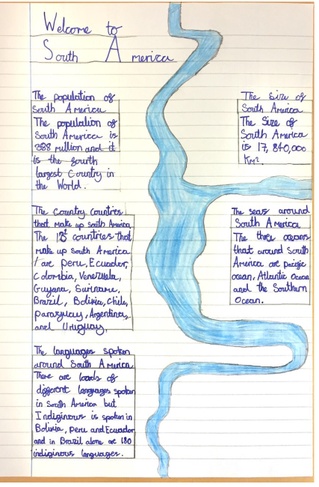 Welcome to
South America
The population of
South America
The population of
South America is
388 million and it
is the fourth
largest Country in
the World.
The Size of
South America
The Size of
South America
is 17,840,000
Km².
The Country Countries
that make up South America
The 13 countries that
make up South America
are Peru, Ecuador,
Colombia, Venezuela,
Guyana, Suriname,
Brazil, Bolivia, Chile,
paraguay, Argentina,
and Uruguay.
The seas around
South America
The three oceans
that around South
America are pacific
ocean, Atlantic Ocean
and the Southern
Ocean.
The languages spoken
around South America
There are loads of
different languages spoken
in South America but
Indiginous is spoken in
Bolivia, Peru and Ecuador
and in Brazil alone are 180
indiginous languages.